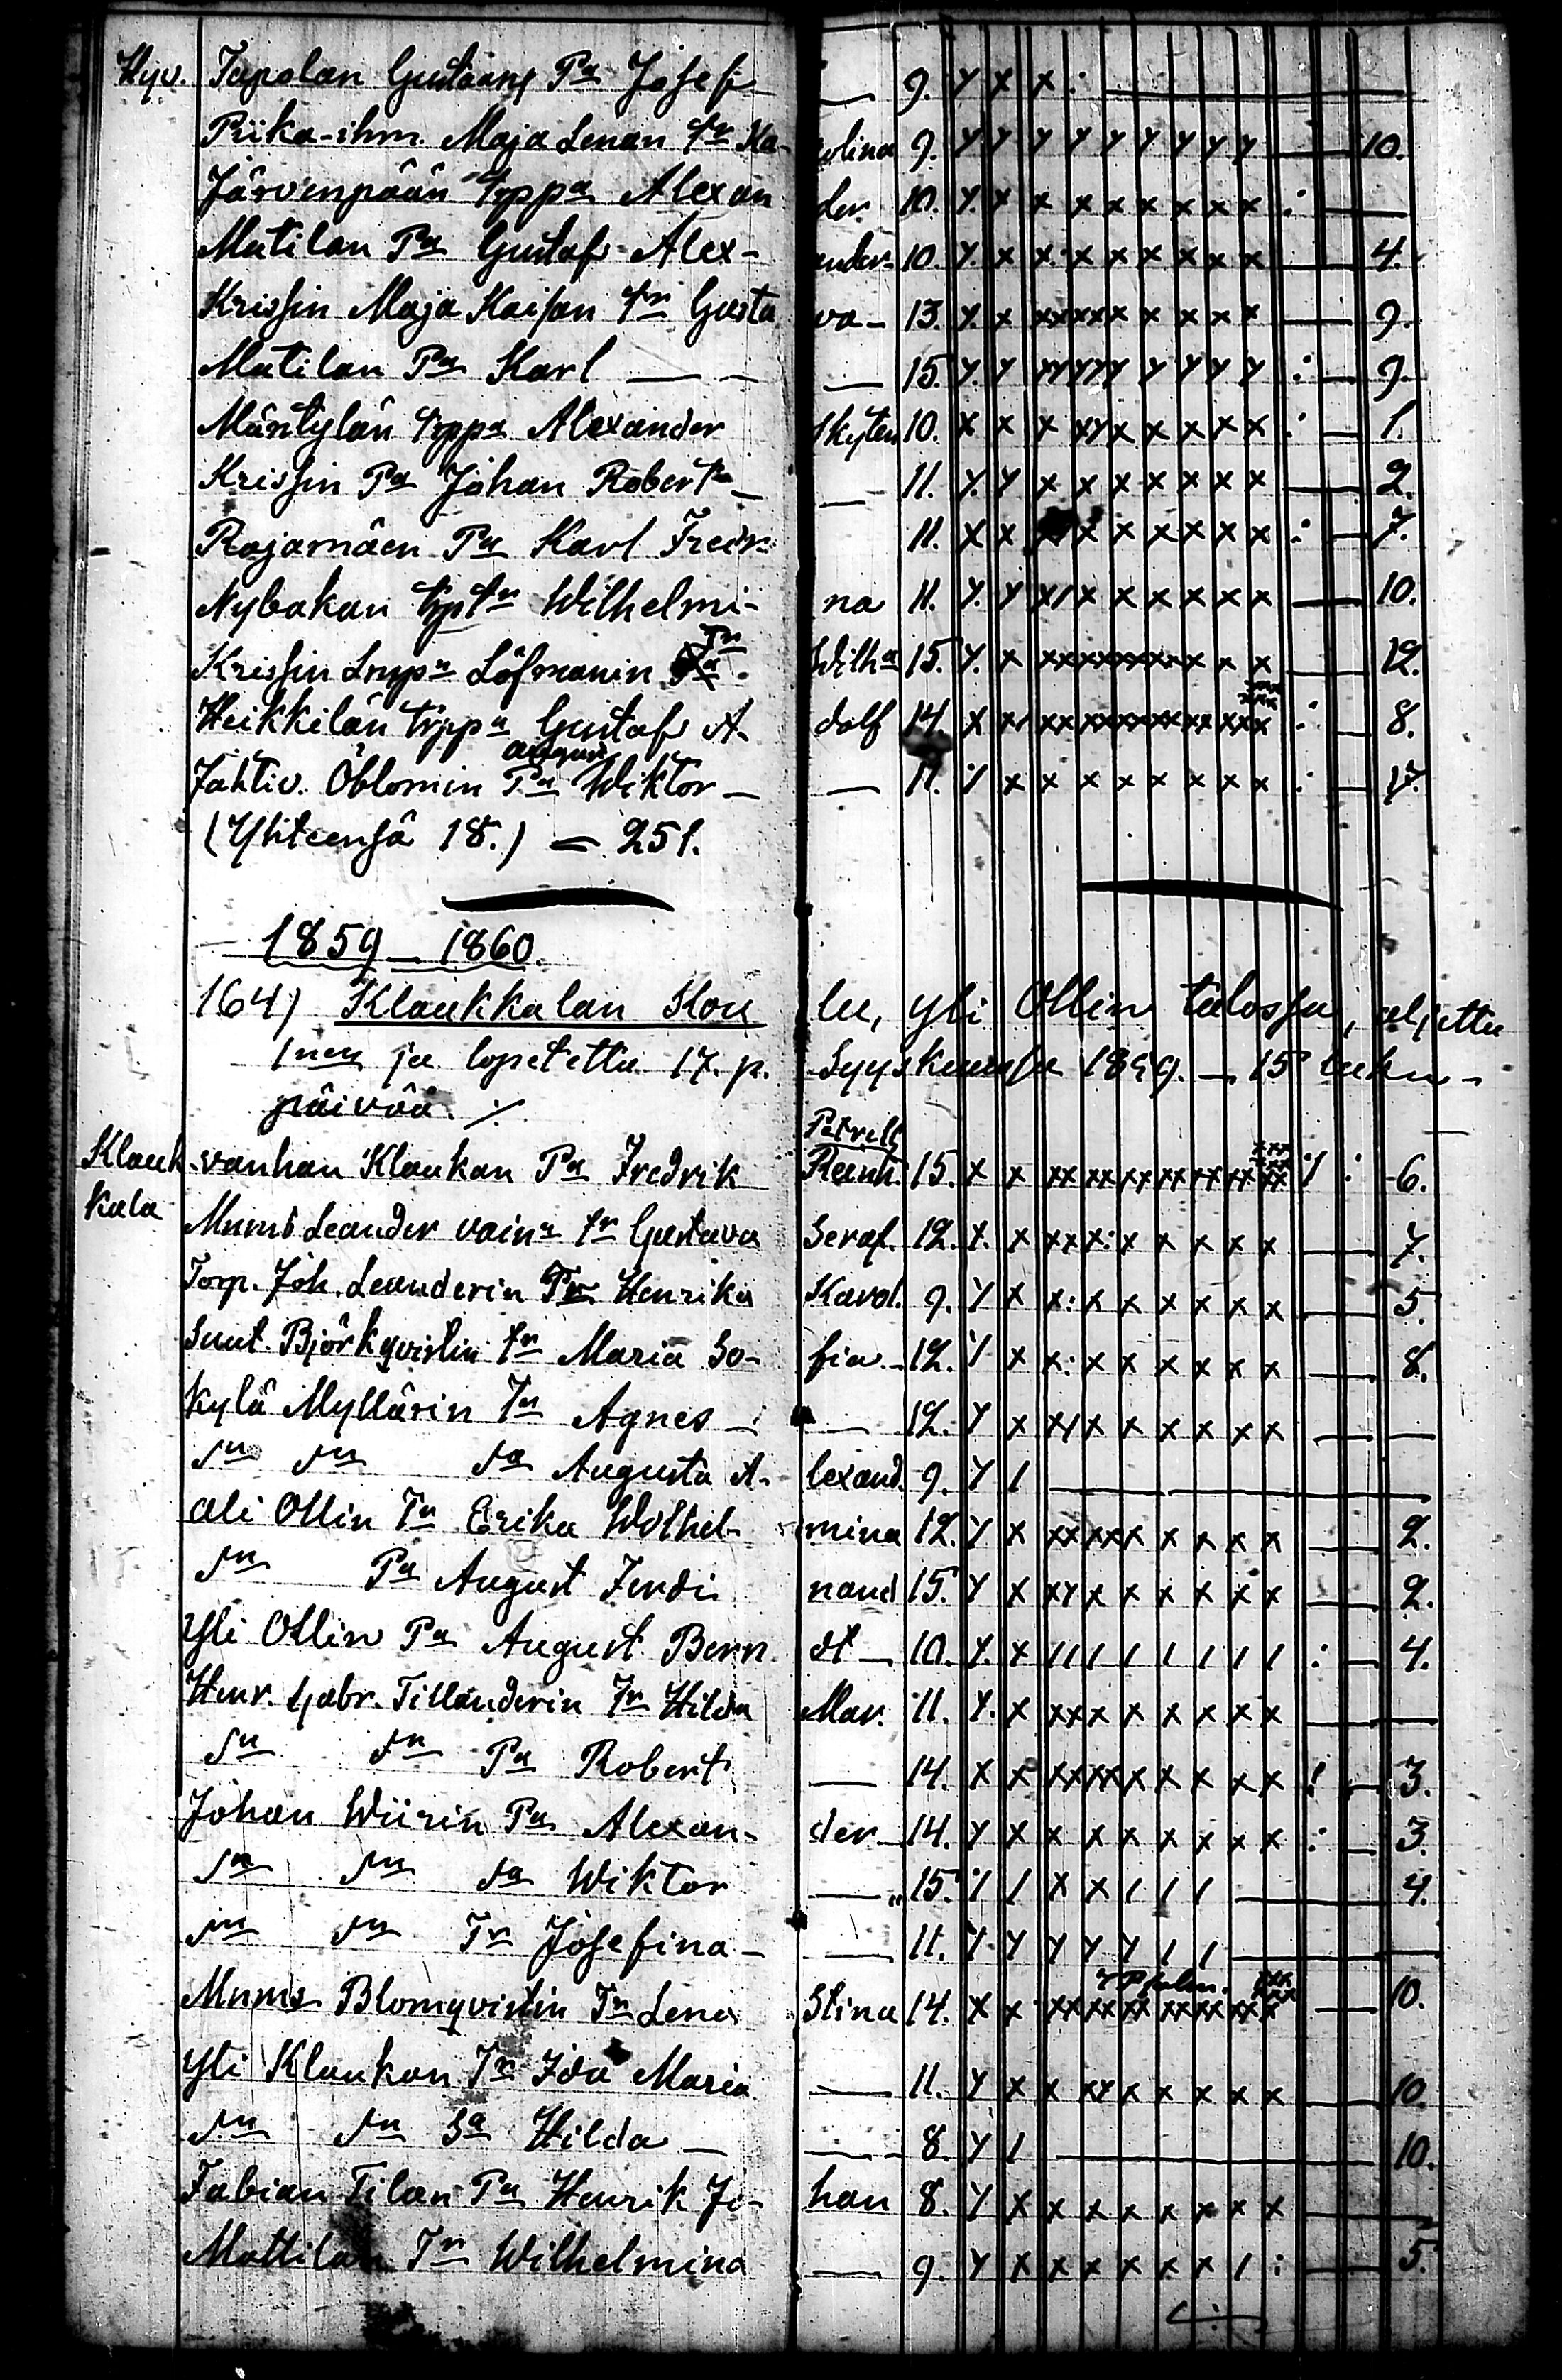 Hyv. Tapolan Gustaavs Pa Josef — 9. y x x : —
Piika-ihm. Maja Lenan tr Ka- rolina 9. y y y y y y y y y — 10.
Järvenpään trppa Alexan der 10. y. x x x x x x x x : —
Matilan Pa Gustaf Alex- ander- 10. y. x x. x x x x x x — 4.
Krissin Maja Kaisan tr Gusta va- 13. y. x xxxxx x x x x — 9.
Matilan Pa Karl — — 15. y. y yyyyy y y y y : — 9.
Mäntylän trppa Alexander Skyten 10. x x x xyx x x x x : — 1.
Krissin Pa Johan Robert — — 11. y. y x x x x x x x — 2.
Rajamäen Pa Karl Fredr. 11. x x x x x x x x : — 7.
Nybakan trptr Wilhelmi- na 11. y. y x/ x x x x x x — 10.
Krissin Löfmanin Tr Wilha 15. y. x xxxxxxxx x x x — 12.
Heikkilän trppa Gustaf A- dolf 14. x x xx xxxxxxxxxxx : — 8.
Jahtiv. Öblomin Pa Wiktor — — 11. y x x x x x x x x : — 17.
(Yhteensä 18.) — 251.
1859 — 1860.
164) Klaukkalan Kou lu, yli Ollin talossa, aljettu
1nen ja lopetettu 17. p. Syyskuussa 1859. — 15 luku-
päivää. ⁒
Klauk- vanhan Klaukan Pa Fredrik Reinh. 15. x x xx xx xx xx xx xx xx : 6.
kala Mnms Leander vaina tr Gustava Seraf. 12. x. x xxx: x x x x x — 7.
Torp. Joh. Leanderin Tr Henrika Karol. 9. y x x: x x x x x x — 5.
Sunt. Björkqvistin tr Maria So- fia — 12. y x x: x x x x x x — 8.
Kylä Myllärin Tr Agnes — — 12. y x xy x x x x x x — —
sn sn sa Augusta A- lexand. 9. y / —
ali Ollin Tr Erika Wilhel- mina 12. y x xxxxx x x x x — 2.
sn Pa August Ferdi nand 15. y x xyx x x x x x — 2.
Yli Ollin Pa August Bern dt — 10. y. x // / / / / / / : — 4.
Henr. Gabr. Tillanderin Tr Hilda Mar. 11. y. x xxx x x x x x — —
sn sn Pa Robert — 14. x x xxxxx x x x x : — 3.
Johan Wiirin Pa Alexan- der — 14. y x x x x x x x x : — 3.
sn sn sa Wiktor — 15. y / x x / / / — 4.
sn sn Tr Josefina — — 11. y y y y y / / — —
Mnms Blomqvistin Tr Lena Stina 14. x x xx xx xx xx xx xx — 10.
Yli Klaukan Tr Ida Maria — 11. y x x xyx x x x x — 10.
sn sn sa Hilda — — 8. y / — 10.
Fabian Tilan Pa Henrik Jo- han 8. y x x x x x x x x —
Mattilan Tr Wilhelmina — 9. y x x x x x x / : — 5.